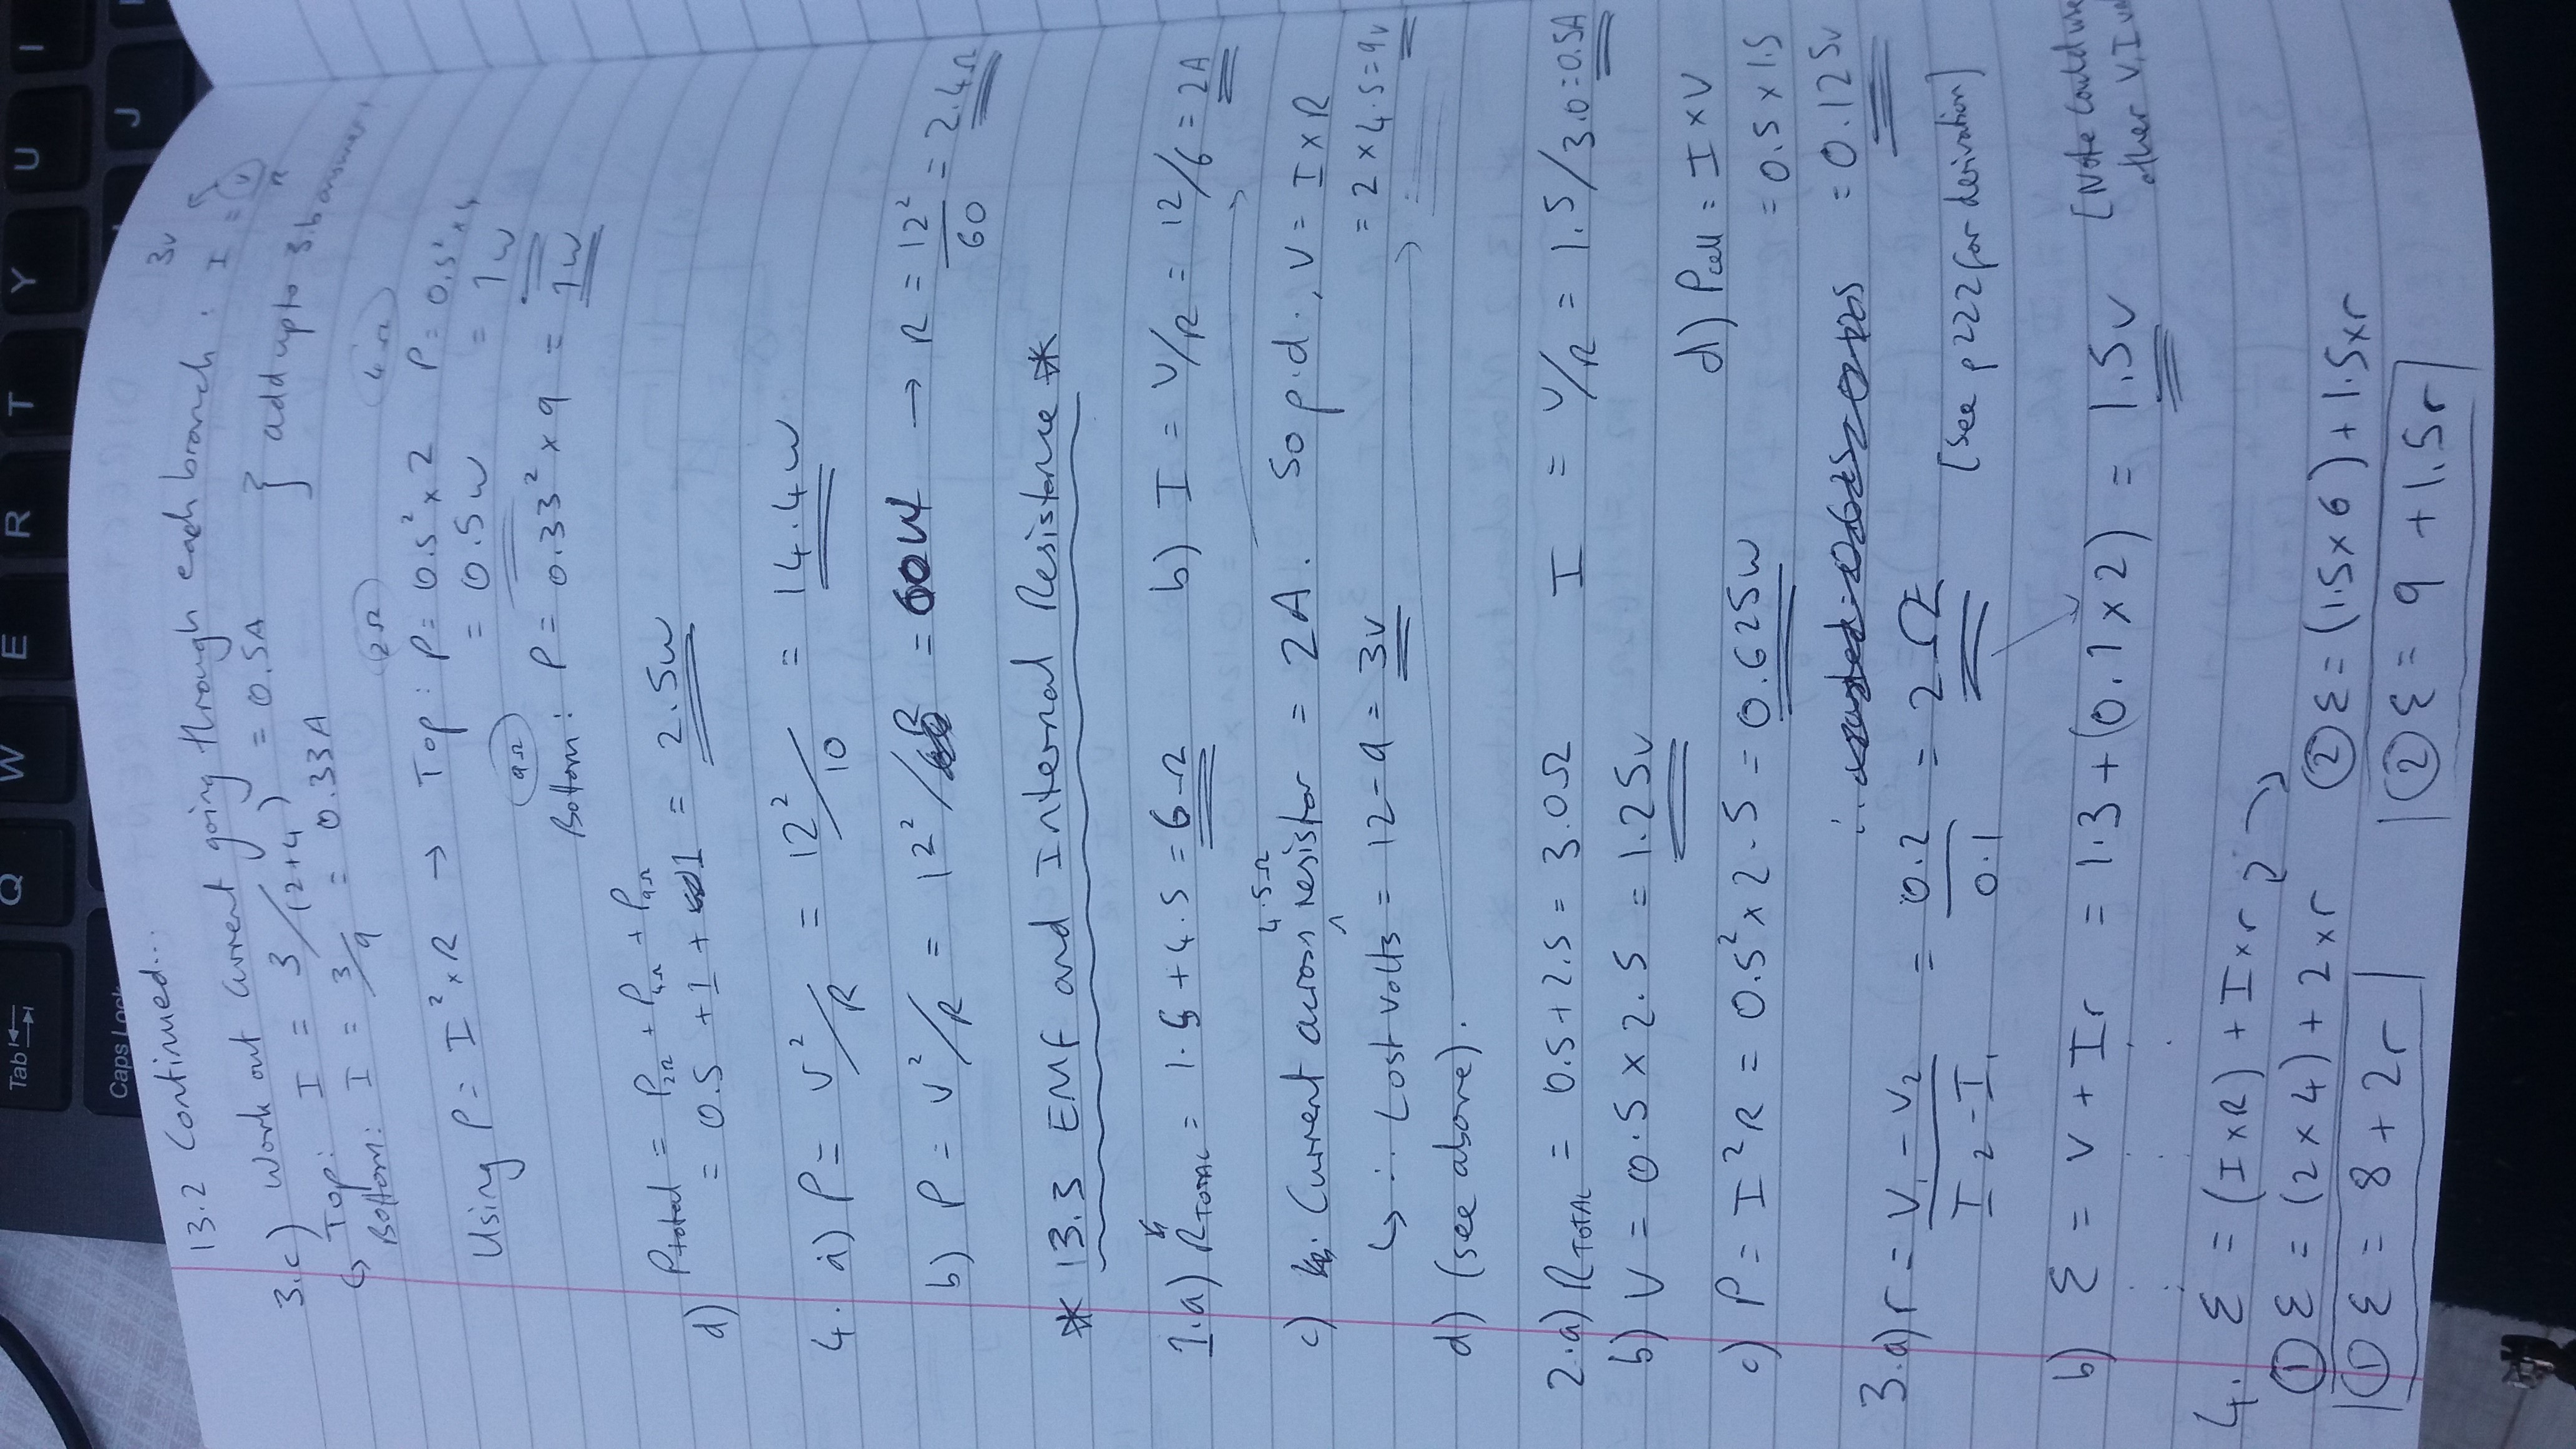 13.2 Continued...
3.c) Work out current going through each branch: I = V/R
3V
Top: I = 3/(2+4) = 0.5A } add up to 3.b answer.
Bottom: I = 3/9 = 0.33A
2Ω 4Ω
Using P = I² x R → Top: P = 0.5² x 2 P = 0.5² x 4
= 0.5W = 1W
9Ω
Bottom: P = 0.33² x 9 = 1W
d) Ptotal = P2Ω + P4Ω + P9Ω
= 0.5 + 1 + 1 = 2.5W
4. a) P = V²/R = 12²/10 = 14.4W
b) P = V²/R = 12²/R = 60W → R = 12²/60 = 2.4Ω
* 13.3 EMF and Internal Resistance *
1.a) RTOTAL = 1.5 + 4.5 = 6Ω b) I = V/R = 12/6 = 2A
4.5Ω
c) Current across ^ resistor = 2A. So p.d., V = I x R
↳ ∴ Lost volts = 12 - 9 = 3V = 2 x 4.5 = 9V
d) (see above).
2.a) RTOTAL = 0.5 + 2.5 = 3.0Ω I = V/R = 1.5/3.0 = 0.5A
b) V = 0.5 x 2.5 = 1.25V
c) P = I²R = 0.5² x 2.5 = 0.625W d) Pcell = I x V
= 0.5 x 1.5
= 0.125V
3.a) r = V1 - V2 / I2 - I1 = 0.2 / 0.1 = 2Ω [see p222 for derivation]
b) ε = V + Ir = 1.3 + (0.1 x 2) = 1.5V [Note could use
other V, I
4. ε = (I x R) + I x r
① ε = (2 x 4) + 2 x r ② ε = (1.5 x 6) + 1.5 x r
① ε = 8 + 2r ② ε = 9 + 1.5r
Tab
Caps Lock
Q W E R T Y U I
J